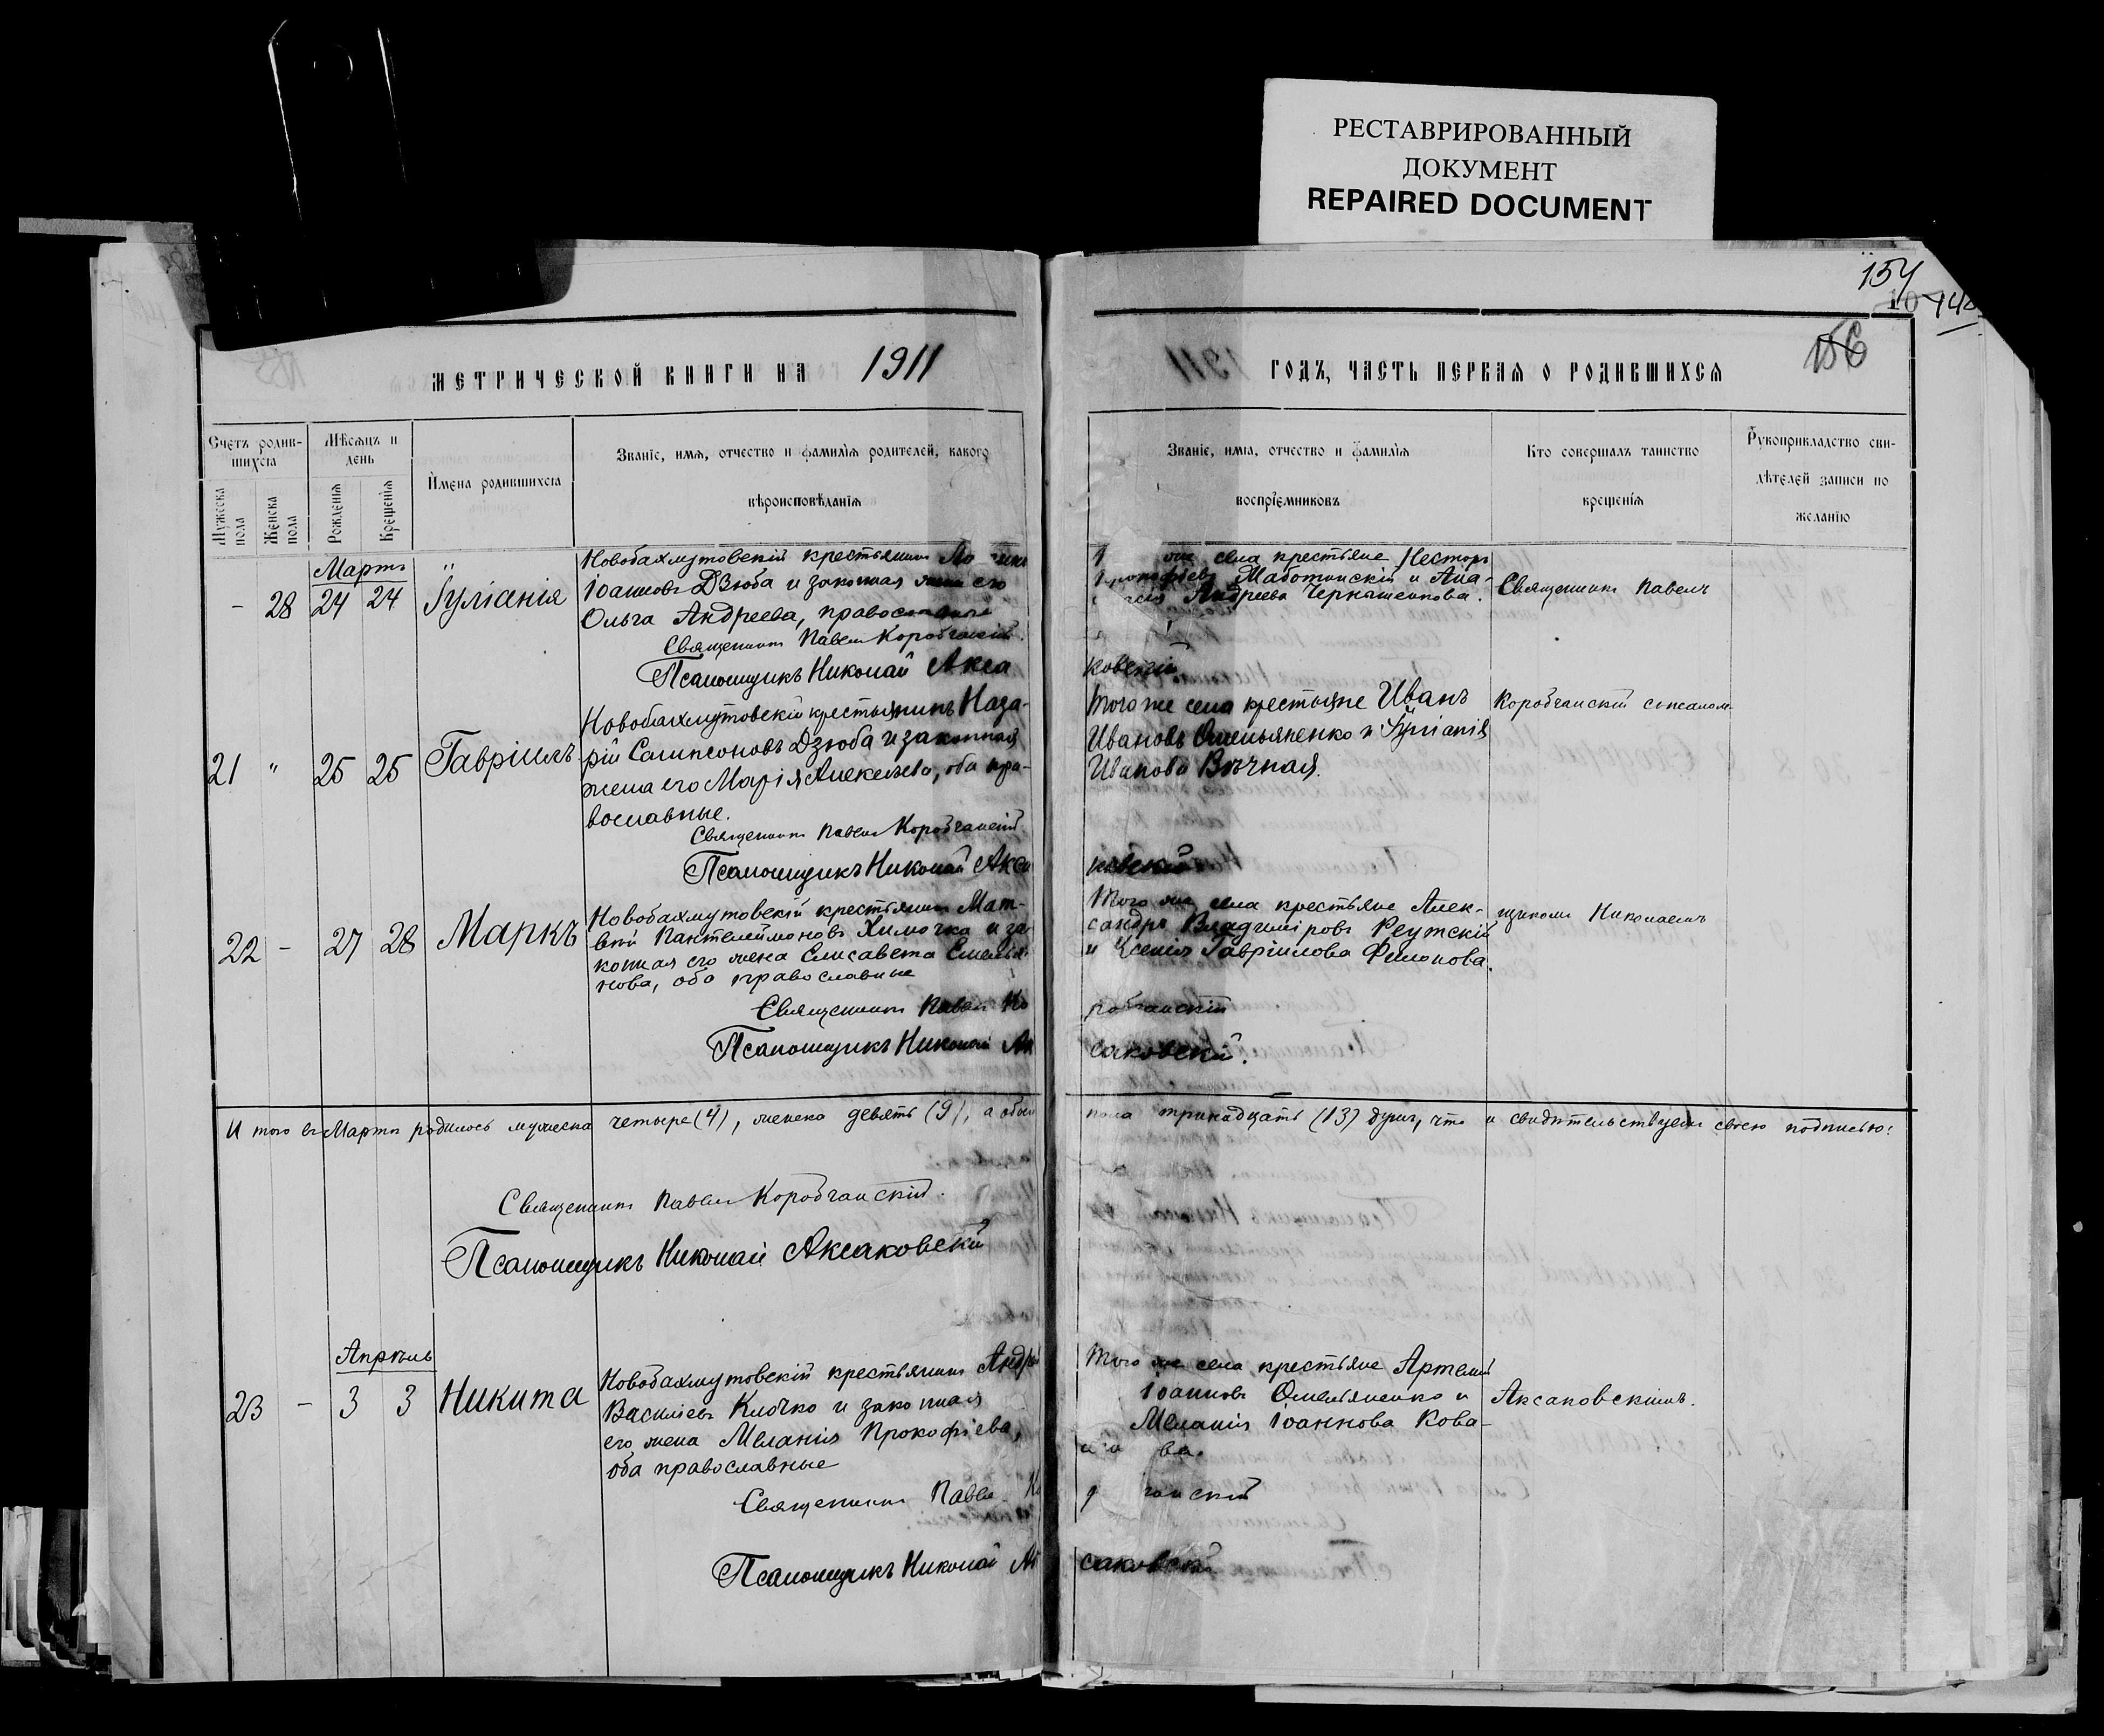 РЕСТАВРИРОВАННЫЙ
ДОКУМЕНТ
REPAIRED DOCUMENT
154
10
156
МЕТРИЧЕСКОЙ КНИГИ НА 1911
ГОДЪ, ЧАСТЬ ПЕРВАЯ О РОДИВШИХСЯ
Счетъ родив-
шихся
Мужеска
пола
Женска
пола
Мѣсяцъ и
день
Рожденія
Крещенія
Имена родившихся
Званіе, имя, отчество и фамилія родителей, какого
вѣроисповѣданія
Званіе, имя, отчество и фамилія
воспріемниковъ
Кто совершалъ таинство
крещенія
Рукоприкладство сви-
дѣтелей записи по
желанію
Мартъ
- 28 24 24 Іуліанія
Новобахмутовскій крестьянинъ
Іоанновъ Дзюба и законная жена его
Ольга Андреева, православные
Священникъ Павелъ Коробчанскій.
Псаломщикъ Николай Акса
же села крестьяне Несторъ
Прокофьевъ Маботинскій и Ана-
Андреева Черкашенкова.
Священникъ Павелъ
ковскій
21 " 25 25 Гавріилъ
Новобахмутовскій крестьянинъ Наза-
рій Сампсоновъ Дзюба и законная
жена его Марія Алексѣева, оба пра-
вославные.
Священникъ Павелъ Коробчанскій.
Псаломщикъ Николай Акса
Того же села крестьяне Иванъ
Ивановъ Омельяненко и Іуліанія
Иванова Вѣчная.
Коробчанскій съ псалом-
ковскій
22 - 27 28 Маркъ
Новобахмутовскій крестьянинъ Мат-
вѣй Пантелеймоновъ Химочка и за-
конная его жена Елисавета Емелья-
нова, оба православные
Священникъ Павелъ Ко
Псаломщикъ Николай Ак
Того же села крестьяне Алек-
сандръ Владиміровъ Реутскій
и Ксенія Гавріилова Филонова.
щикомъ Николаемъ
робчанскій
саковскій.
И того въ Мартѣ родилось мужеска четыре (4), женска девять (9), а обоего
пола тринадцать (13) душъ, что и свидѣтельствуемъ своею подписью:
Священникъ Павелъ Коробчанскій.
Псаломщикъ Николай Аксаковскій
Апрѣль
23 - 3 3 Никита
Новобахмутовскій крестьянинъ Андрей
Василіевъ Клочко и законная
его жена Меланія Прокофіева,
оба православные
Священникъ Павелъ Ко
Псаломщикъ Николай Ак
Того же села крестьяне Артемій
Іоанновъ Омельяненко и
Меланія Іоаннова Кова-
ва.
Аксаковскимъ.
чанскій
саковскій